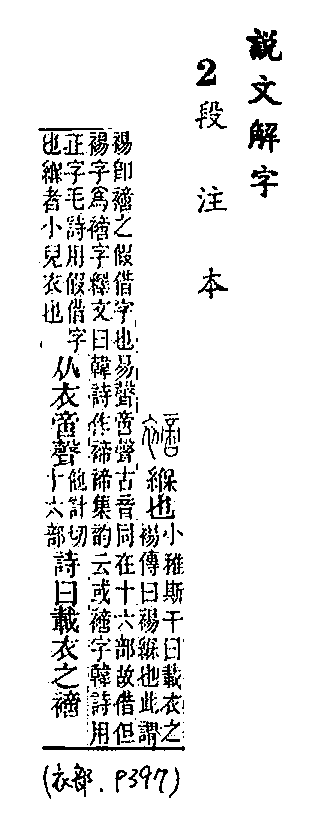 說文解字
2段注本
緥也小雅斯干曰載衣之
裼傳曰裼緥也此謂
裼卽𧝐之假借字也易聲啻聲古音同在十六部故借但
裼字爲𧝐字釋文曰韓詩作禘禘集韵云或𧝐字韓詩用
正字毛詩用假借字
也緥者小兒衣也
从衣啻聲他計切
十六部
詩曰載衣之𧝐
(衣部.P397)